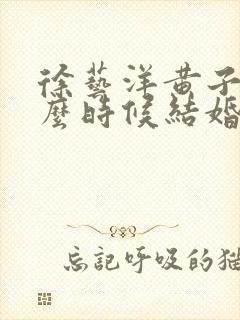 徐藝洋黃子
麼時候結婚
忘記呼吸的猫